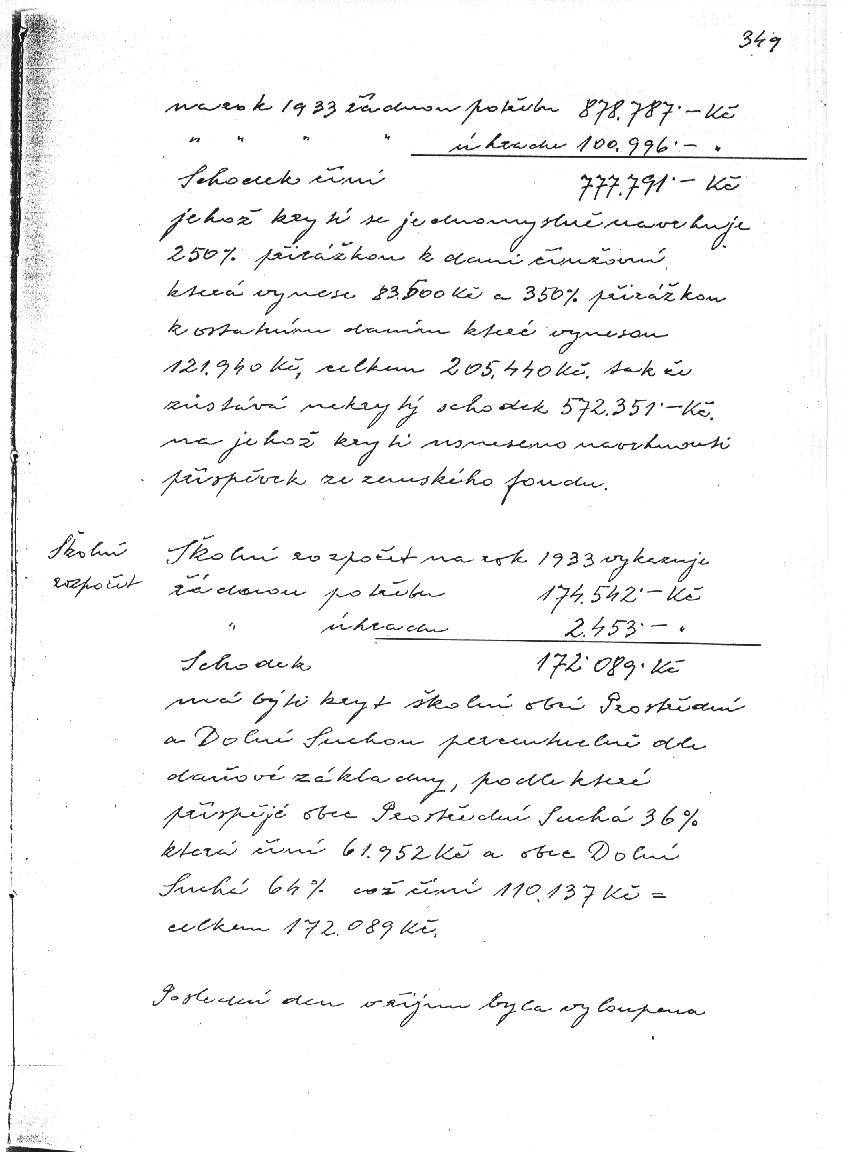 349
na rok 1933 řádnou potřebu 878.787·– Kč
" " " " úhradu 100.996·– "
Schodek činí 777.791·– Kč
jehož krytí se jednomyslně navrhuje
250% přirážkou k dani činžovní
která vynese 83.500 Kč a 350% přirážkou
k ostatním daním které vynesou
121.940 Kč, celkem 205.440 Kč. tak že
zůstává nekrytý schodek 572.351·– Kč.
na jehož krytí usneseno navrhnouti
příspěvek ze zemského fondu.
Školní
rozpočet
Školní rozpočet na rok 1933 vykazuje
řádnou potřebu 174.542·– Kč
" úhradu 2.453·– "
Schodek 172·089· Kč
má býti kryt školní obcí Prostřední
a Dolní Suchou percentuelně dle
daňové základny, podle které
přispěje obec Prostřední Suchá 36%
která činí 61.952 Kč a obec Dolní
Suchá 64% což činí 110.137 Kč =
celkem 172.089 Kč.
Poslední den v říjnu byla vyloupena